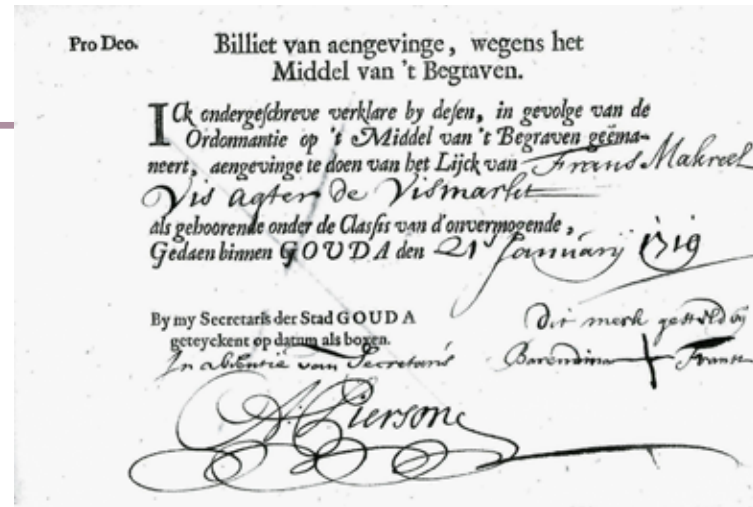 Pro Deo.
Billiet van aengevinge, wegens het
Middel van 't Begraven.
ICk ondergeschreve verklare by desen, in gevolge van de
Ordonnantie op 't Middel van 't Begraven geëma-
neert, aengevinge te doen van het Lijck van Frans Makreel
Vis agter de Vismarkt
als gehoorende onder de Classis van d'onvermogende,
Gedaen binnen GOUDA den 21 Januarij 1719
By my Secretaris der Stad GOUDA
geteyckent op datum als boven.
In absentie van Secretaris
Dit merk gesteld bij
Barendina Franse
A Piersone